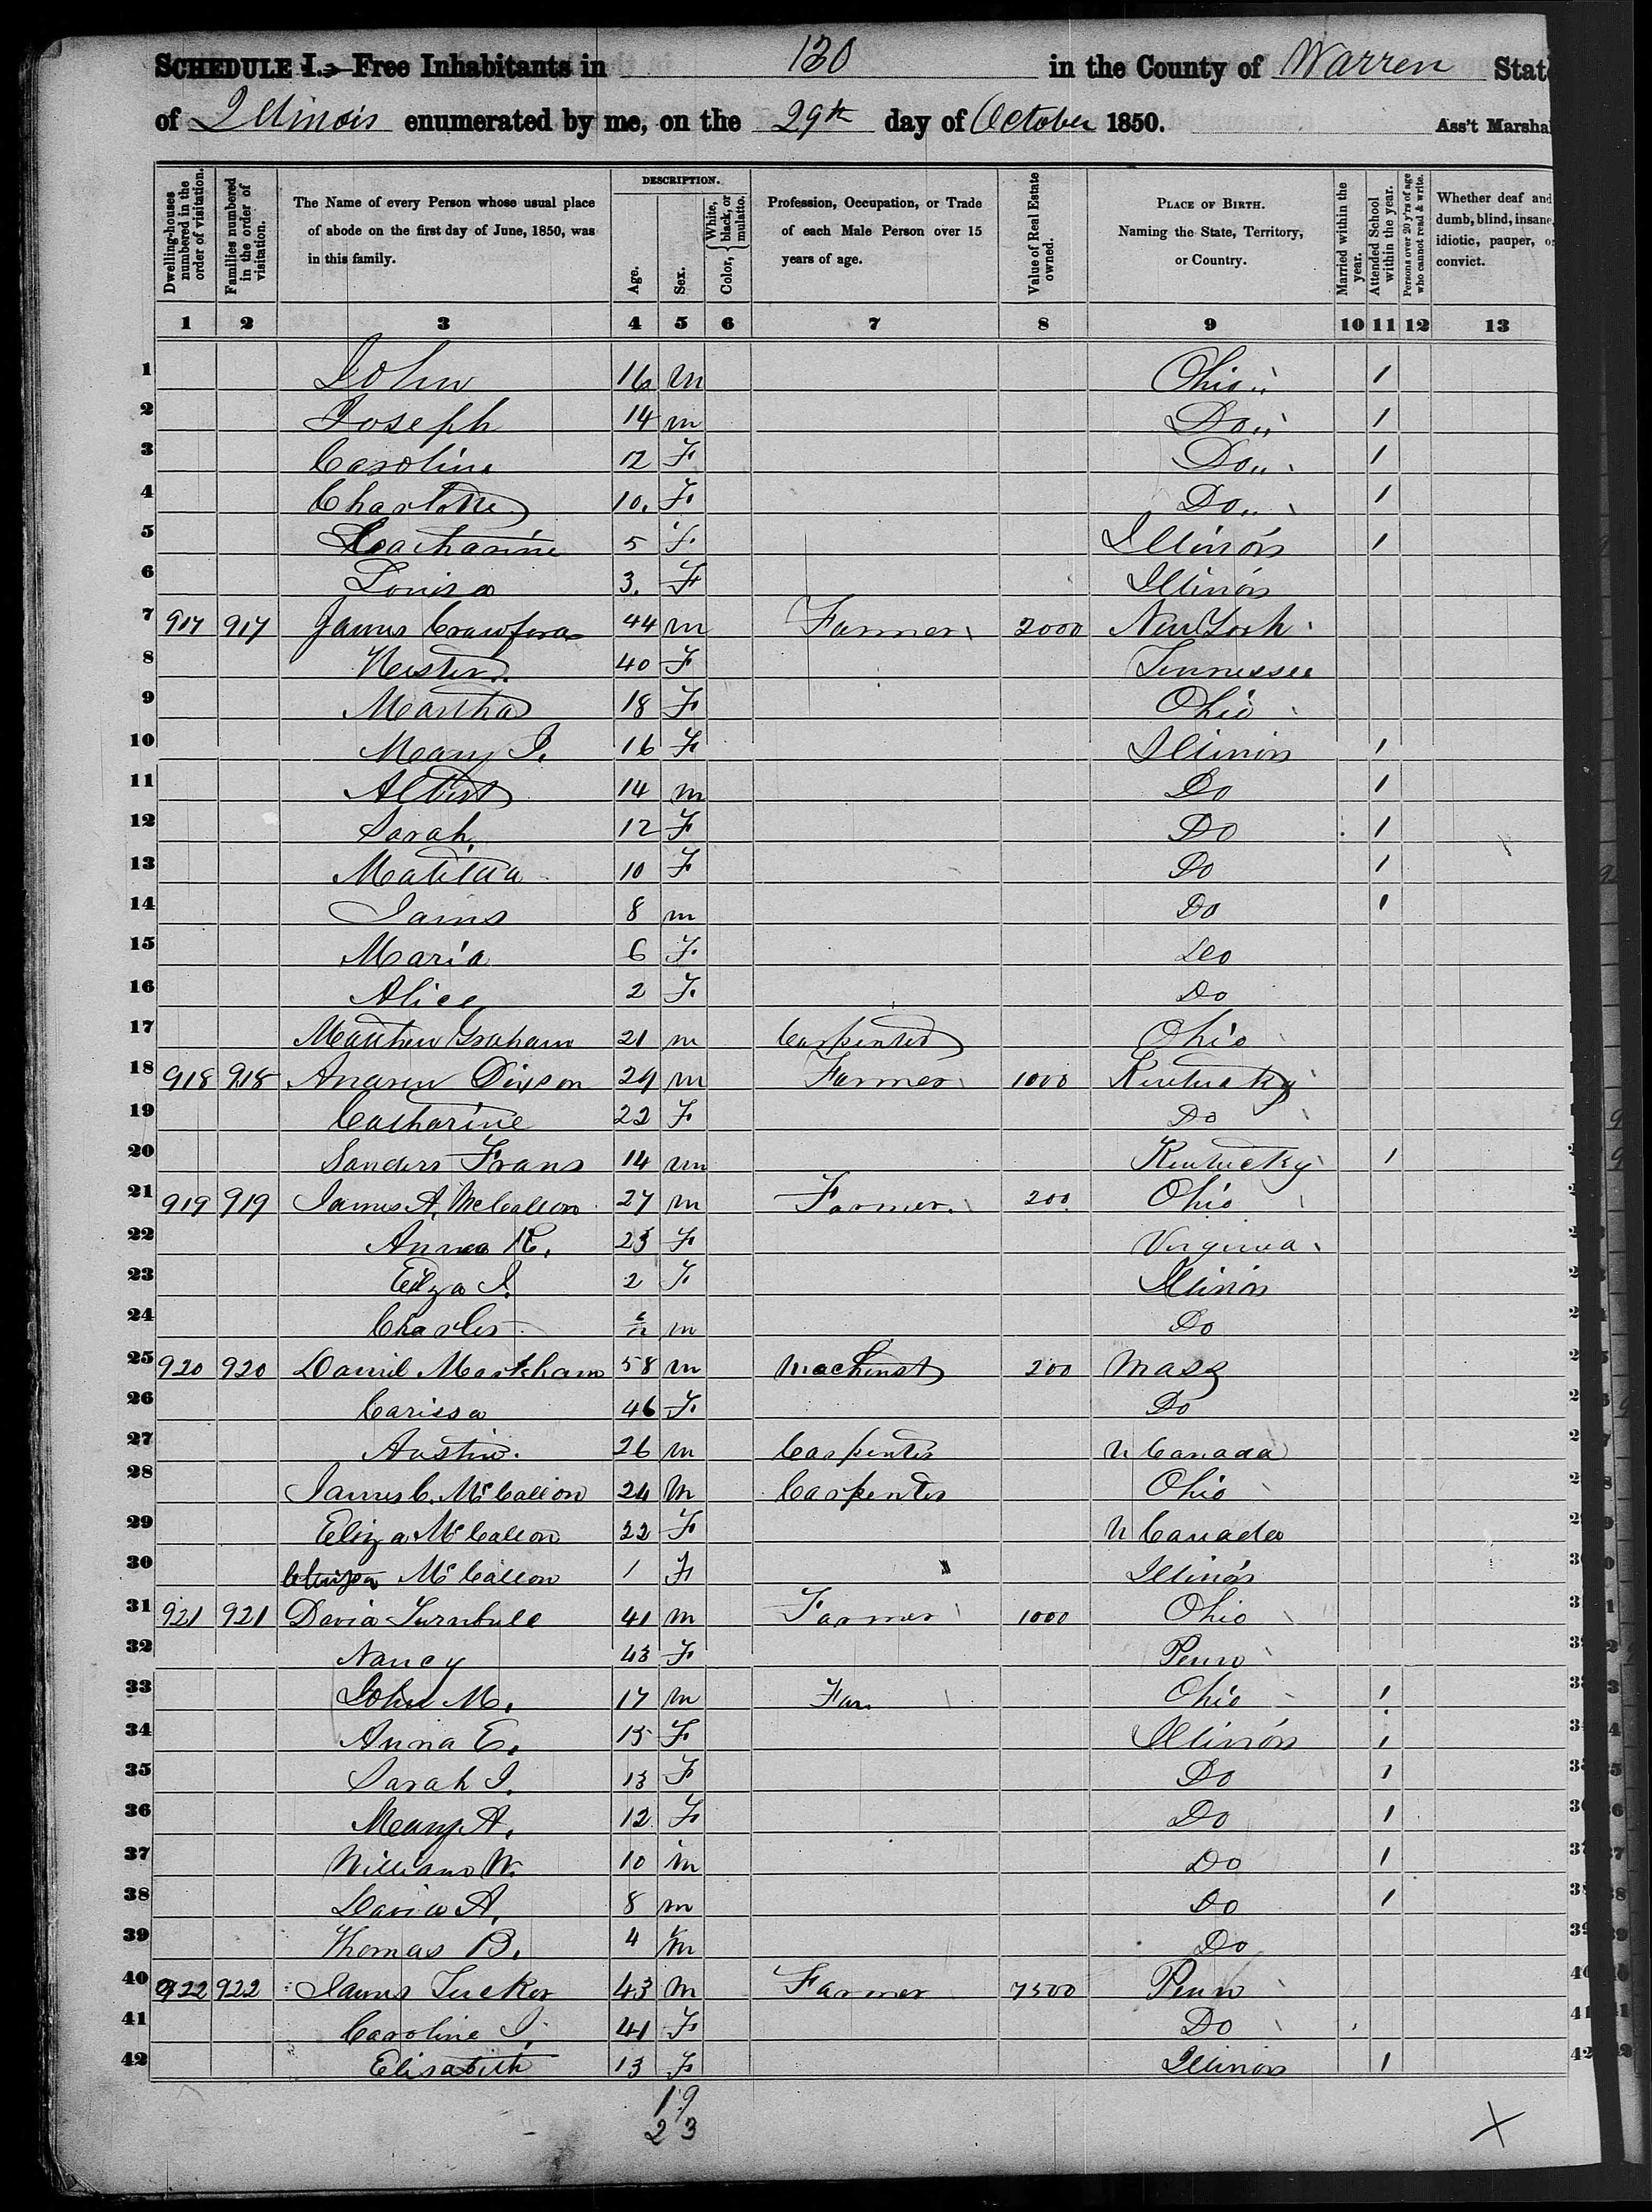 SCHEDULE I.—Free Inhabitants in 130 in the County of Warren State
of Illinois enumerated by me, on the 29th day of October 1850. Ass't Marshal
Dwelling-houses numbered in the order of visitation.
Families numbered in the order of visitation.
The Name of every Person whose usual place of abode on the first day of June, 1850, was in this family.
DESCRIPTION.
Age.
Sex.
Color, { White, black, or mulatto.
Profession, Occupation, or Trade of each Male Person over 15 years of age.
Value of Real Estate owned.
PLACE OF BIRTH. Naming the State, Territory, or Country.
Married within the year.
Attended School within the year.
Persons over 20 y'rs of age who cannot read & write.
Whether deaf and dumb, blind, insane, idiotic, pauper, or convict.
1 2 3 4 5 6 7 8 9 10 11 12 13
1 John 16 m Ohio 1
2 Joseph 14 m Do 1
3 Caroline 12 F Do 1
4 Charlotte 10 F Do 1
5 Catharine 5 F Illinois 1
6 Louisa 3 F Illinois
7 917 917 James Crawford 44 m Farmer 2000 New York
8 Hester 40 F Tennessee
9 Martha 18 F Ohio
10 Mary J. 16 F Illinois 1
11 Albert 14 m Do 1
12 Sarah 12 F Do 1
13 Matilda 10 F Do 1
14 James 8 m Do 1
15 Maria 6 F Do
16 Alice 2 F Do
17 Matthew Graham 21 m Carpenter Ohio
18 918 918 Andrew Dixson 29 m Farmer 1000 Kentucky
19 Catharine 22 F Do
20 Sanders Frans 14 m Kentucky 1
21 919 919 James A. McCallon 27 m Farmer 200 Ohio
22 Anna R. 23 F Virginia
23 Eliza J. 2 F Illinois
24 Charles m Do
25 920 920 Daniel Markham 58 m Machinest 200 Mass
26 Carissa 46 F Do
27 Austin 26 m Carpenter U Canada
28 James C. McCallon 24 m Carpenter Ohio
29 Eliza McCallon 22 F U Canada
30 McCallon 1 F Illinois
31 921 921 David Turnbull 41 m Farmer 1000 Ohio
32 Nancy 43 F Penn
33 John M. 17 m Far. Ohio 1
34 Anna E. 15 F Illinois 1
35 Sarah J. 13 F Do 1
36 Mary A. 12 F Do 1
37 William W. 10 m Do 1
38 David A. 8 m Do 1
39 Thomas B. 4 m Do
40 922 922 James Tucker 43 m Farmer 7500 Penn
41 Caroline J. 41 F Do
42 Elisabeth 13 F Illinois 1
19
23